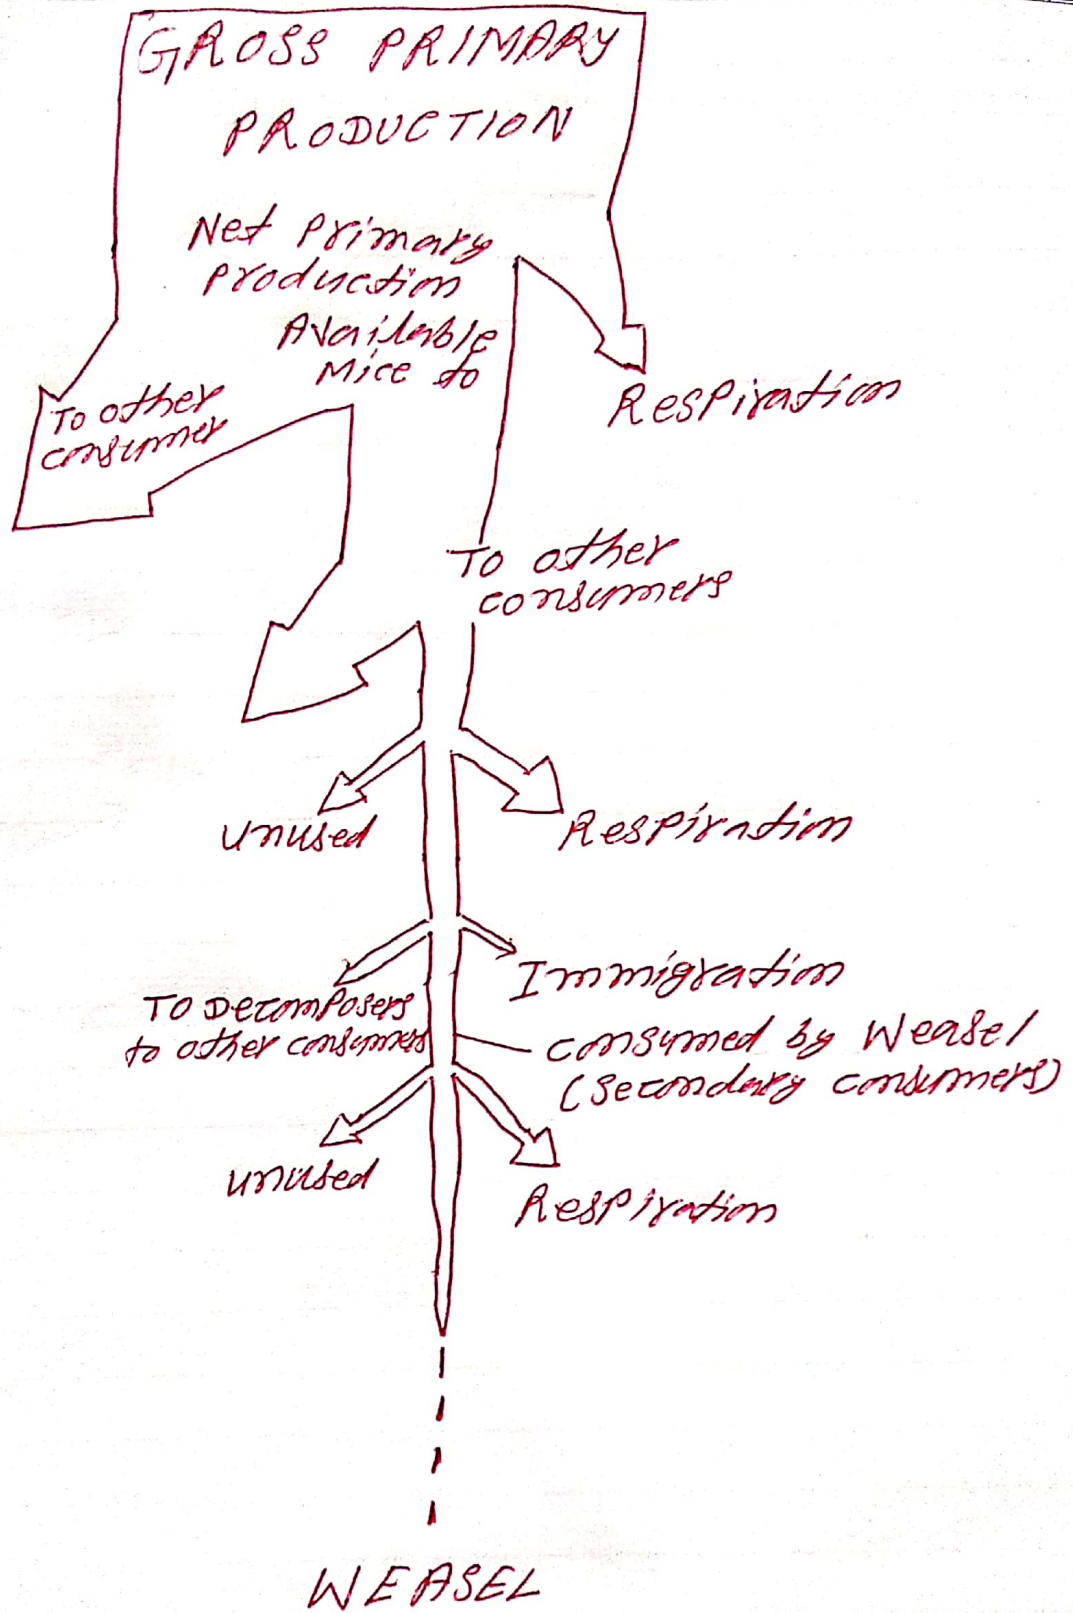 GROSS PRIMARY
PRODUCTION
Net Primary
Production
Available
Mice to
To other
consumer
Respiration
To other
consumers
Unused
Respiration
Immigration
To Decomposers
to other consumers
consumed by Weasel
(Secondary consumers)
Unused
Respiration
WEASEL